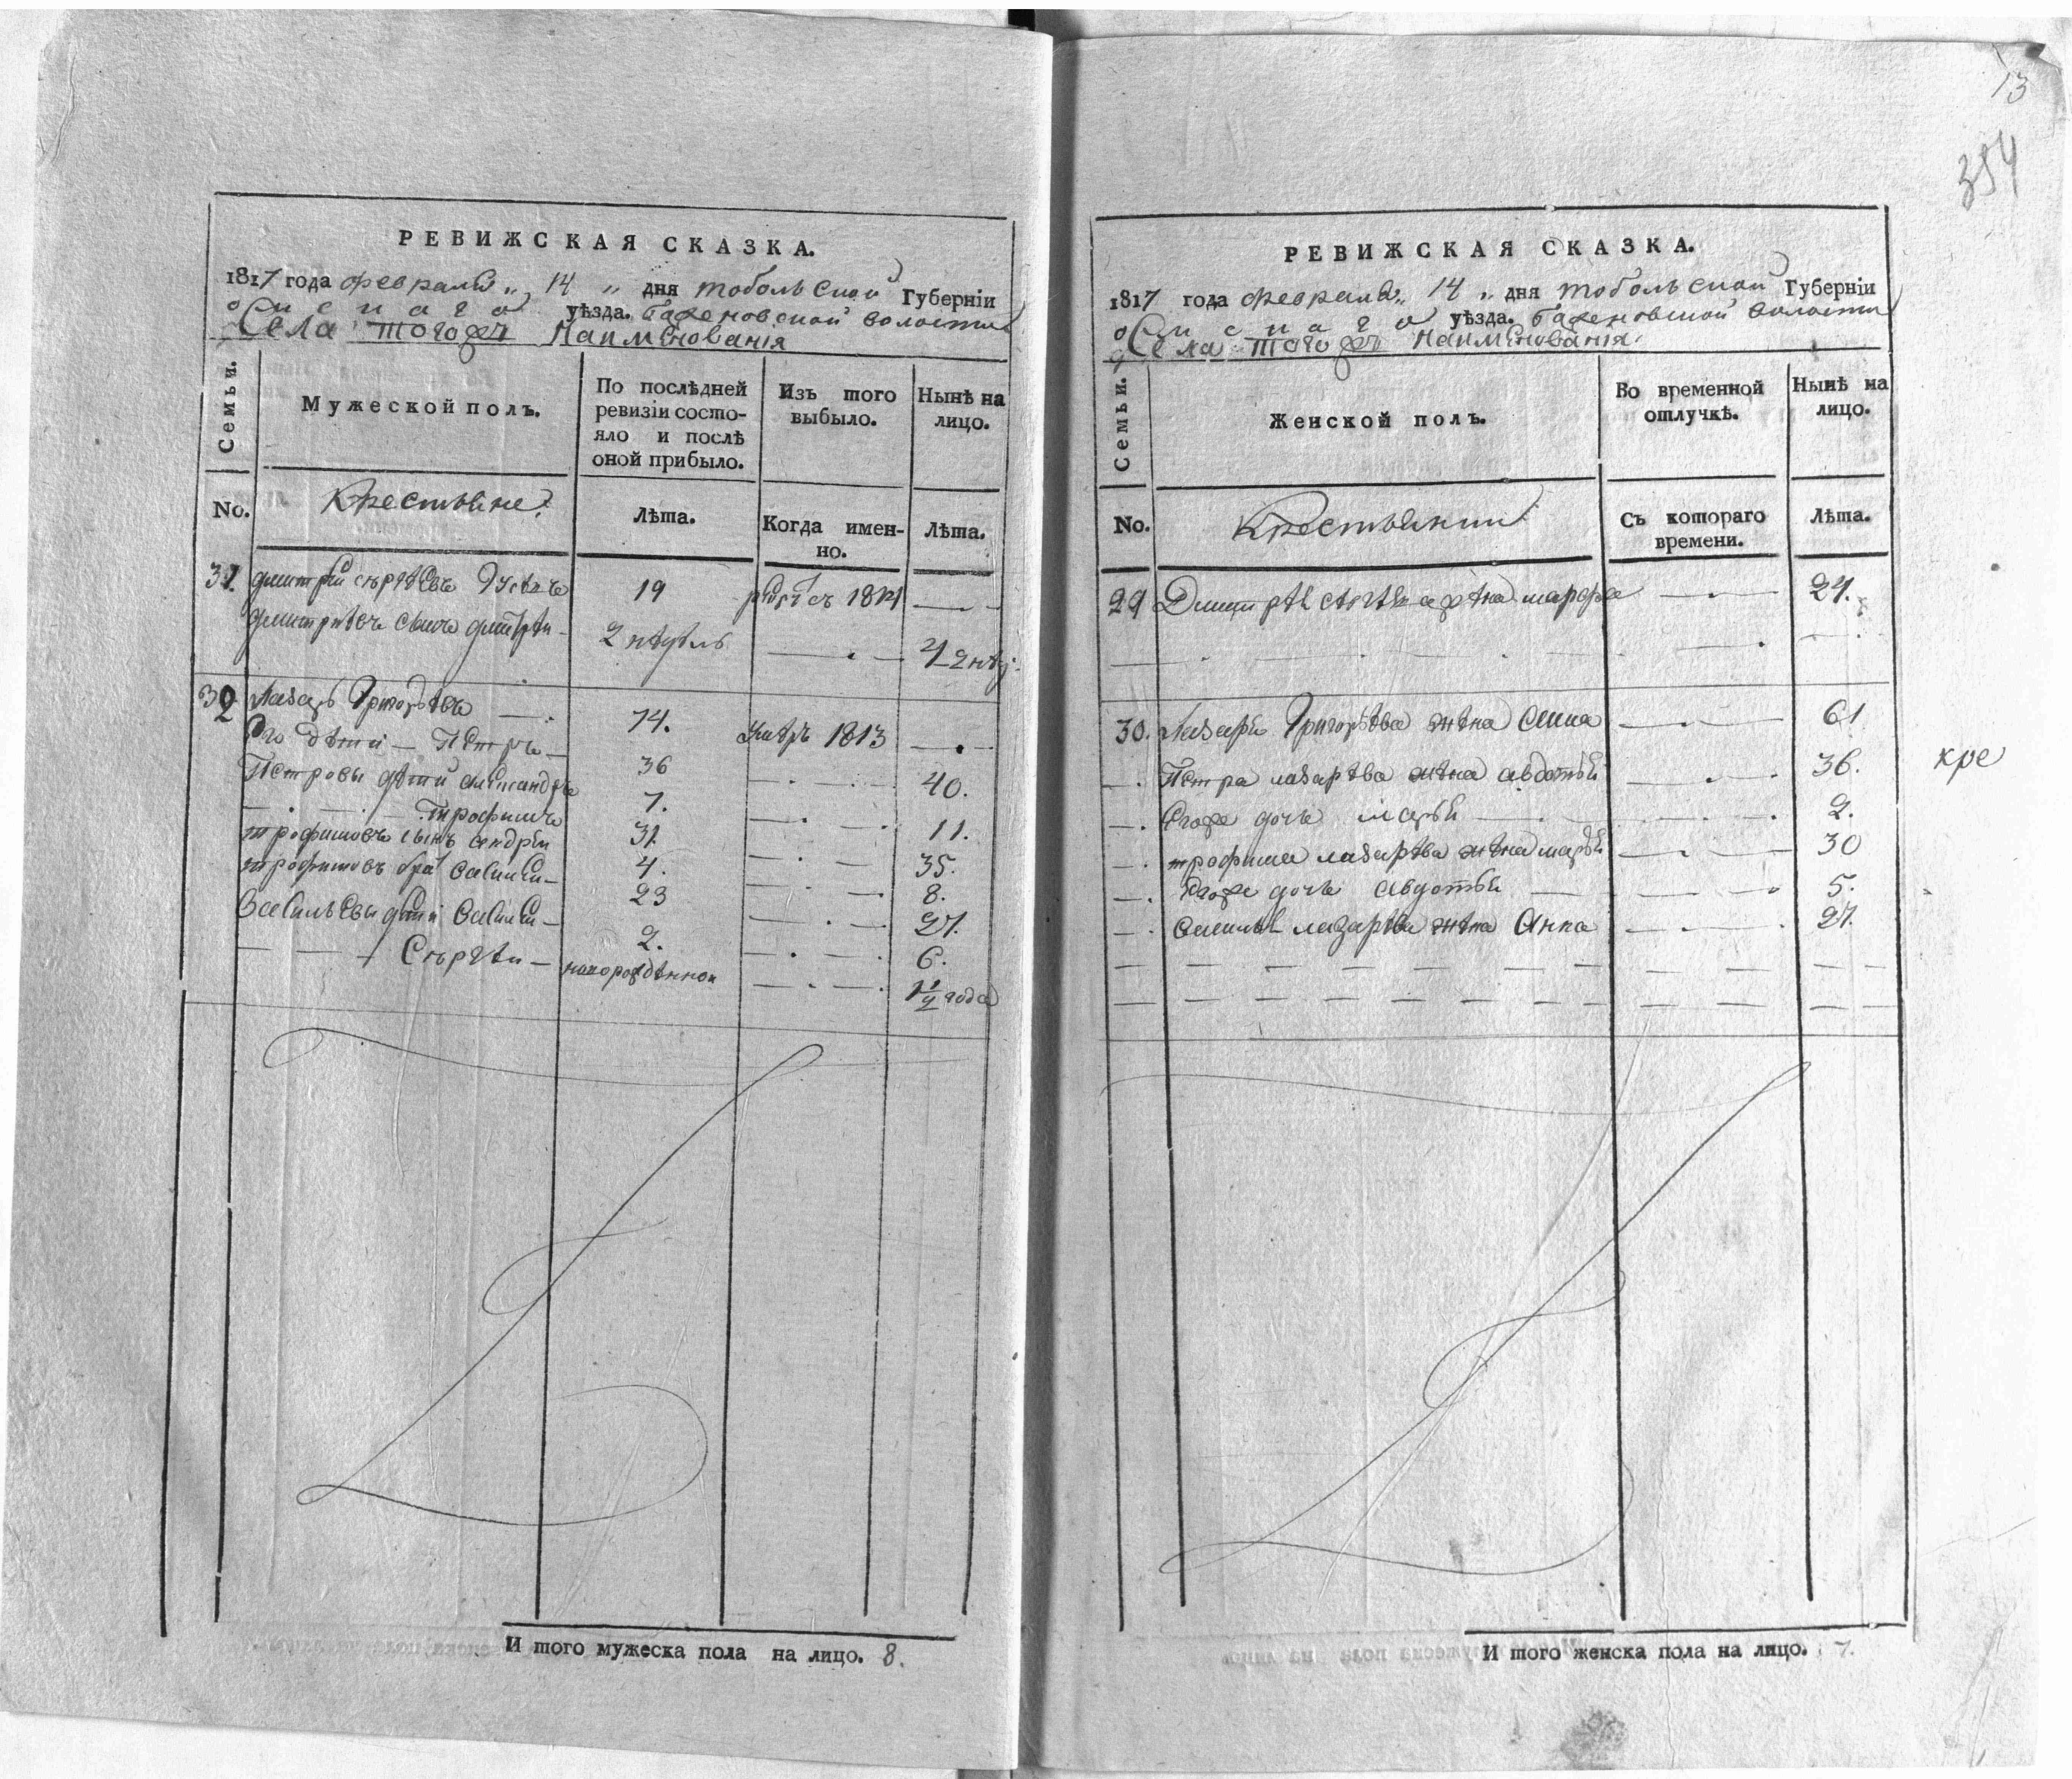 РЕВИЖСКАЯ СКАЗКА.
1817 года февраля „ 14 „ дня тобольской Губерніи
Омскаго уѣзда. Баженовской волости
Села тогожъ наименованія
Семьи.
Мужеской полъ.
По послѣдней ревизіи состо-
яло и послѣ
оной прибыло.
Изъ того
выбыло.
Нынѣ на
лицо.
No.
Крестьяне
Лѣта.
Когда имен-
но.
Лѣта.
31. дмитрѣй сѣргѣевъ 19 1814
дмитрѣевъ сынъ дмитрѣй 2 недѣль 4 2 нед:
32 Лазарь Григорьевъ 74. умеръ 1813
Его дети Петръ 36 40.
Петровы дѣти александръ 7. 11.
трофимъ 31. 35.
трофимовъ сынъ андрѣй 4. 8.
трофимовъ братъ василей 23 27.
васильевы дети василей 2. 6.
Сѣргѣй новорожденной 1 1/4 года
И того мужеска пола на лицо. 8.
13
354
РЕВИЖСКАЯ СКАЗКА.
1817 года февраля „ 14 „ дня тобольской Губерніи
Омскаго уѣзда. Баженовской волости
Села тогожъ наименованія
Семьи.
Женской полъ.
Во временной
отлучкѣ.
Нынѣ на
лицо.
No.
Крестьянки
Съ котораго
времени.
Лѣта.
29 Дмитрѣя жена марфа 24.
30. Лазаря Григорьева жена 61
Петра лазарева жена авдотья 36.
Егоже дочь марья 2.
трофима лазарева жена марья 30
Егоже дочь авдотья 5.
василья лазарева жена Анна 27.
кре
И того женска пола на лицо. 7.